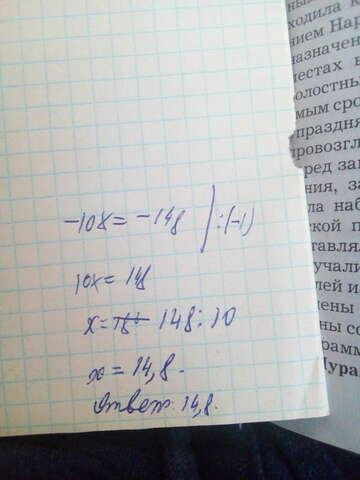 -10x = -148 | :(-1)
10x = 148
x = 148 : 10
x = 14,8.
Ответ: 14,8.
ходила к
нием Нар
назначен
местах в
олостны
мым сро
праздня
ровозгл
ред зан
ния, за
ла наб
ской п
тавлял
учали
лей из
чены
ны со
рамм